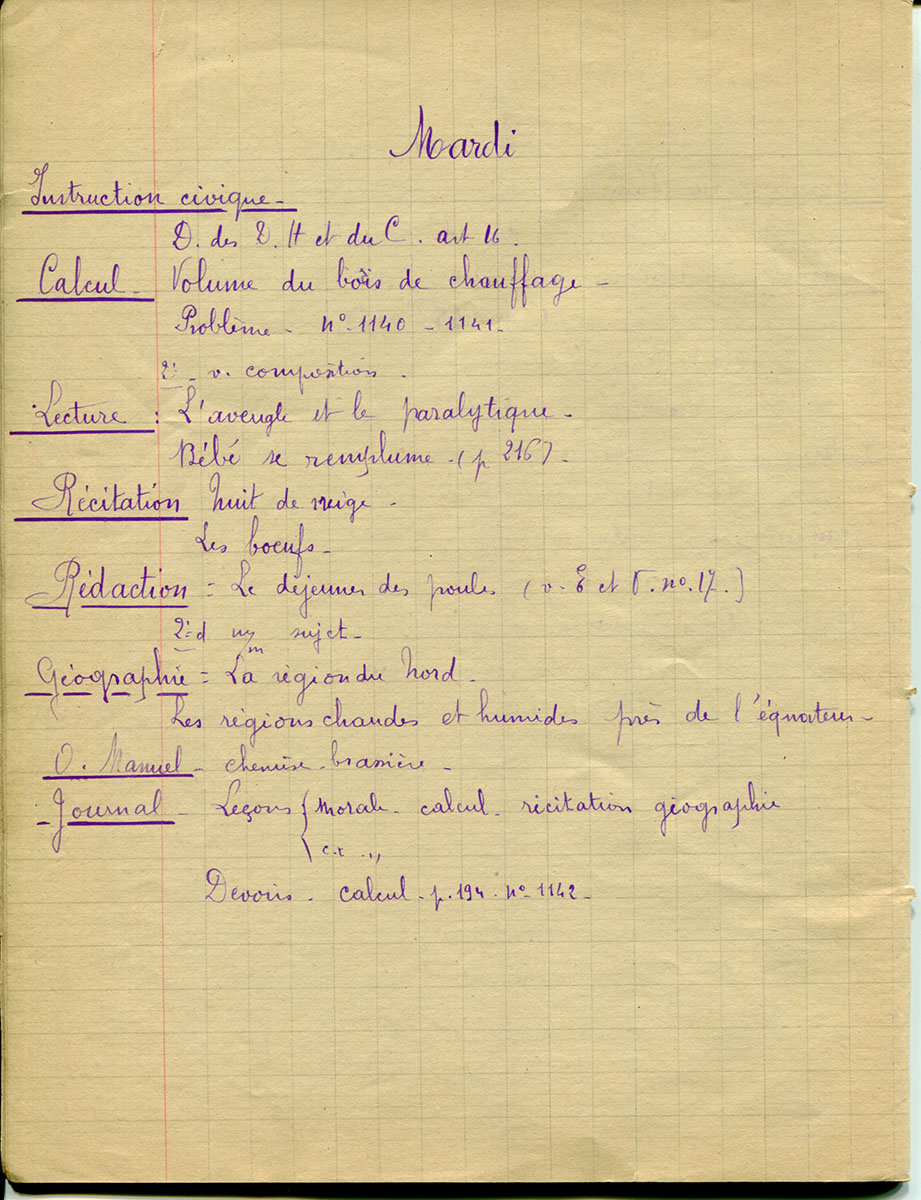 Mardi
Instruction civique -
D. des D. H et du C. art 16.
Calcul - Volume du bois de chauffage -
Problème - n° 1140 - 1141 -
2è - v. composition .
Lecture : L'aveugle et le paralytique -
Bébé se remplume - (p 216) -
Récitation Nuit de neige -
Les boeufs -
Rédaction = Le déjeuner des poules ( v. E et T. no. 17. )
2è d m sujet -
Géographie = La région du Nord .
Les régions chaudes et humides près de l'équateur -
O. Manuel - chemise-brassière -
- Journal - Leçons { Morale - calcul - récitation géographie
c.t. ,,
Devoirs - calcul - p. 194 - no - 1142 -